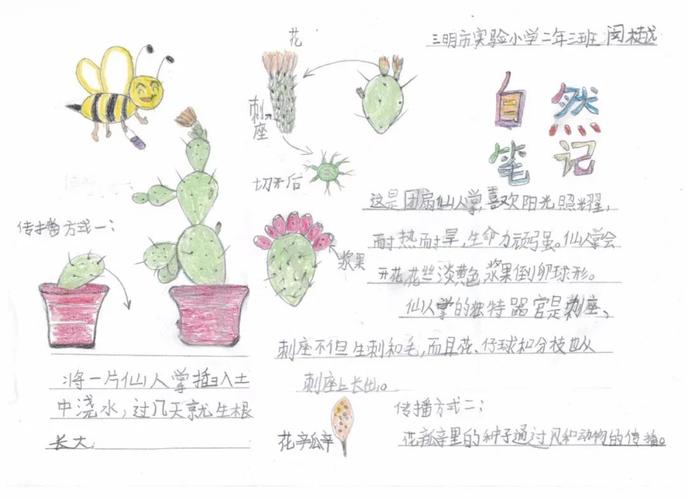 三明市实验小学二年三班
自然
笔记
花
刺座
切开后
浆果
这是团扇仙人掌,喜欢阳光照耀,
耐热耐旱,生命力顽强。仙人掌会
开花花丝淡黄色浆果倒卵球形。
仙人掌的独特器官是刺座、
刺座不但生刺和毛,而且花、仔球和分枝也从
刺座上长出。
传播方式一:
将一片仙人掌插入土
中浇水,过几天就生根
长大.
花瓣
传播方式二:
花瓣里的种子通过风和动物的传播。